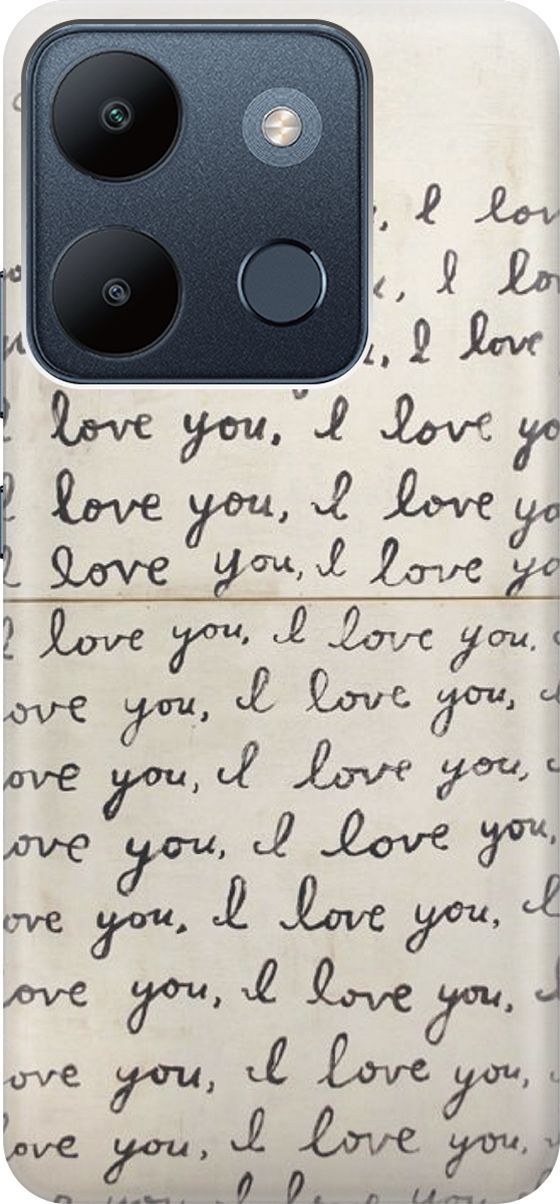 , I lov
, I lo
, I love
I love you, I love yo
I love you, I love yo
I love you, I love yo
I love you, I love you,
ove you, I love you,
ove you, I love you,
ove you, I love you,
ove you, I love you,
ove you, I love you,
ove you, I love you,
ove you, I love you,